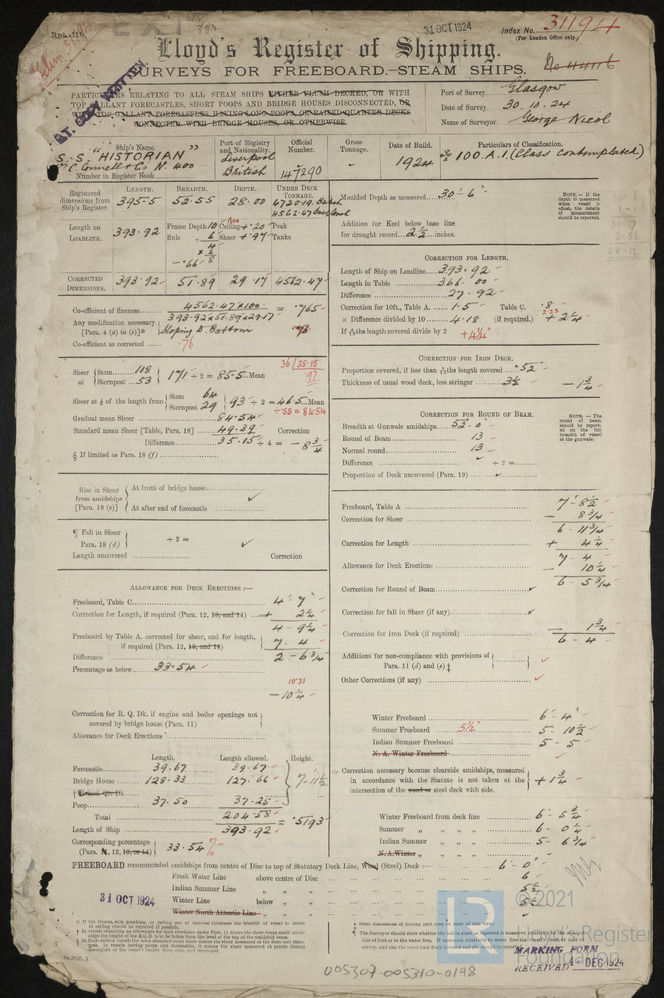 31 OCT 1924
Index No. 311914
(For London Office only.)
Lloyd's Register of Shipping.
SURVEYS FOR FREEBOARD.—STEAM SHIPS.
PARTICULARS RELATING TO ALL STEAM SHIPS EITHER FLUSH DECKED, OR WITH
TOP-GALLANT FORECASTLES, SHORT POOPS AND BRIDGE HOUSES DISCONNECTED, OR
WITH TOP-GALLANT FORECASTLES HAVING LONG POOPS OR RAISED QUARTER DECKS
CONNECTED WITH BRIDGE HOUSES, OR OTHERWISE.
Port of Survey Glasgow
Date of Survey 30.10.24
Name of Surveyor George Nicol
Ship's Name.
S.S. "HISTORIAN"
C. Connell & Co. N. 400
Number in Register Book
Port of Registry and Nationality.
Liverpool
British
Official Number.
147290
Gross Tonnage.
Date of Build.
1924
Particulars of Classification.
100.A.1. (Class Contemplated)
Registered dimensions from Ship's Register.
LENGTH. 395.5
BREADTH. 52.55
DEPTH. 28.00
UNDER DECK TONNAGE.
4562.47
Length on LOADLINE. 393.92
Frame Depth 10
Rule 6
Ceiling + .20
Sheer + .97
Peak Tanks
CORRECTED DIMENSIONS. 393.92 51.89 29.17 4562.47
Co-efficient of fineness 4562.47 x 100 = .765
393.92 x 51.89 x 29.17
Any modification necessary [Para. 4 (d) to (e)]* Sloping D. Bottom
Co-efficient as corrected .76
Sheer at Stem 118
Sternpost 53
171 ÷ 2 = 85.5 Mean
Sheer at ⅛ of the length from Stem 64
Sternpost 29
93 ÷ 2 = 46.5 Mean
÷ .55 = 84.54
Gradual mean Sheer 84.54
Standard mean Sheer [Table, Para. 18] 49.39 Correction
Difference 35.15 ÷ 4 = - 8¾
§ If limited as Para. 18 (f)
Rise in Sheer from amidships [Para. 18 (e)]
At front of bridge house
At after end of forecastle
¶ Fall in Sheer Para. 18 (d) ÷ 2 =
Length uncovered Correction
ALLOWANCE FOR DECK ERECTIONS:—
Freeboard, Table C. 4 - 7
Correction for Length, if required (Para. 12, 13, and 14) + 2¼
4 - 9¼
Freeboard by Table A. corrected for sheer, and for length, if required (Para. 12, 13, and 14) 7 - 4
Difference 2 - 6¾
Percentage as below 33.54
10.31
- 10¼
Correction for R. Q. Dk. if engine and boiler openings not covered by bridge house (Para. 11)
Allowance for Deck Erections
Length. Length allowed. Height.
Forecastle 39.67 39.67
Bridge House 128.33 127.66 7-11½
† Raised Qr. Dk.
Poop 37.50 37.25
Total 204.58
Length of Ship 393.92 = .5193
Corresponding percentage (Para. 11, 12, 13, or 14) 33.54 %
Moulded Depth as measured 30' - 6"
Addition for Keel below base line for draught record 2½ inches.
NOTE.—If the depth is measured when vessel is afloat, the details of measurement should be reported.
CORRECTION FOR LENGTH.
Length of Ship on Loadline 393.92
Length in Table 366.00
Difference 27.92
Correction for 10ft., Table A. 1.5 Table C. .8
× Difference divided by 10 4.18 (if required.) + 2¼
If ⁶⁄₁₀ths length covered divide by 2 + 4¼
CORRECTION FOR IRON DECK.
Proportion covered, if less than ⁷⁄₁₀ths length covered .52
Thickness of usual wood deck, less stringer 3½ - 1¾
CORRECTION FOR ROUND OF BEAM.
Breadth at Gunwale amidships 52 - 0
Round of Beam 13
Normal round 13
Difference ÷ 2 =
Proportion of Deck uncovered (Para. 19)
NOTE.—The round of beam should be reported on the full breadth of vessel at the gunwale.
Freeboard, Table A 7 - 8½
Correction for Sheer - 8¾
6 - 11¾
Correction for Length + 4¼
7 - 4
Allowance for Deck Erections - 10¼
6 - 5¾
Correction for Round of Beam
Correction for fall in Sheer (if any)
Correction for Iron Deck (if required) - 1¾
6 - 4
Additions for non-compliance with provisions of Para. 11 (d) and (e) ‡
Other Corrections (if any)
Winter Freeboard 6 - 4
Summer Freeboard 5½ 5 - 10½
Indian Summer Freeboard 5 - 5
N. A. Winter Freeboard
Correction necessary because clearside amidships, measured in accordance with the Statute is not taken at the intersection of the wood or steel deck with side. + 1¾
Winter Freeboard from deck line 6 - 5¾
Summer " " " " 6 - 0¼
Indian Summer " " " " 5 - 6¾
N. A. Winter " "
FREEBOARD recommended amidships from centre of Disc to top of Statutory Deck Line, Wood (Steel) Deck:— 6 - 0
Fresh Water Line above centre of Disc 6
Indian Summer Line " " 5½
Winter Line below " 5½
Winter North Atlantic Line
31 OCT 1924
© 2021
Lloyd's Register
Foundation
LR
MARKING FORM
RECEIVED DEC 1924
005307-005310-0198